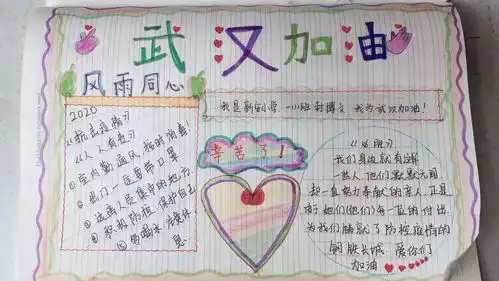 武汉加油
风雨同心
我是新 小学 一小班 封博文 我为武汉加油!
2020
《抗击疫情》
《人人有责》
①室内勤通风 按时消毒!
②出门一定要带口罩
③远离人员集中的地方
④积极防控 保护自己
⑤多喝水 注意休息
辛苦了!
《必胜》
我们身边就有这样
一些人,他们默默无闻
却一直努力奉献的亲人,正是
有了她们(他们)每一位的付出
为我们铸就了防控疫情的
钢铁长城 爱你们
加油